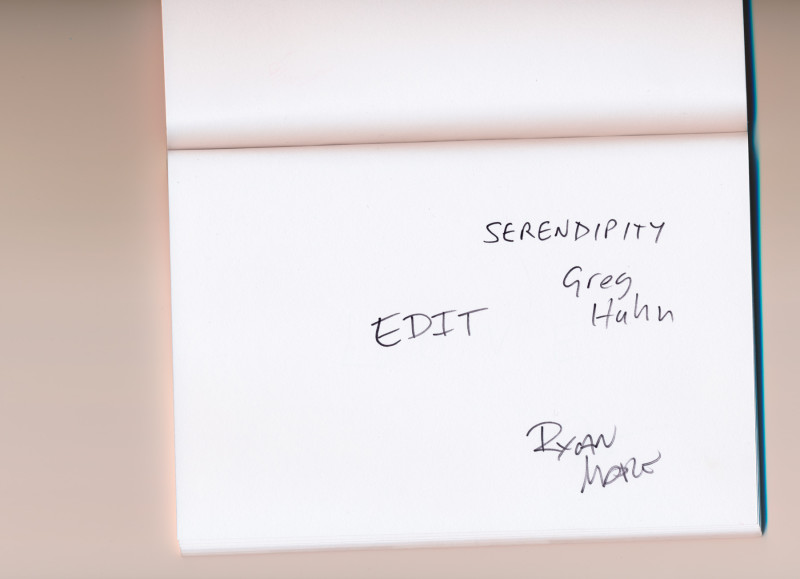 SERENDIPITY
Greg
Hahn
EDIT
RYAN